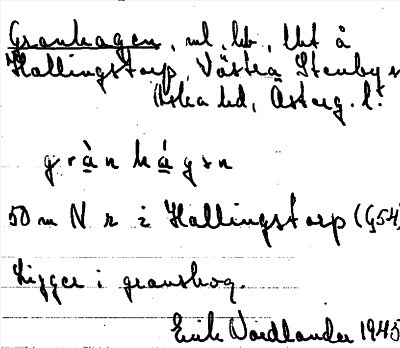 Granhagen, ml, lht å
Hallingstorp, Västra Stenby sn
Aska hd, Österg. l.
gràn hágən
50 m N r i Hallingstorp (G54)
Ligger i granskog.
Erik Nordlander 1945